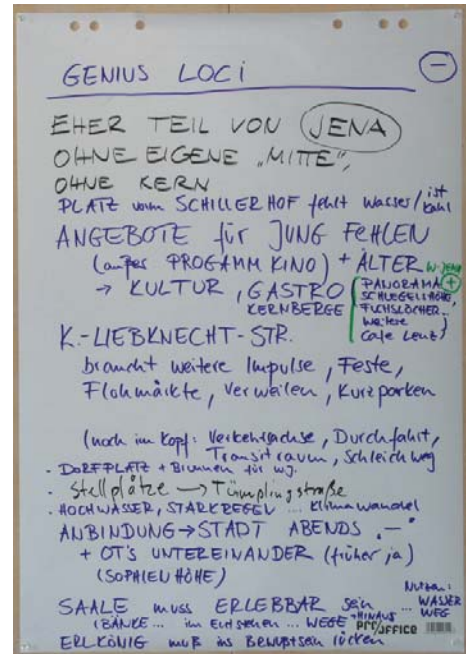 GENIUS LOCI
−
EHER TEIL VON JENA
OHNE EIGENE „MITTE“,
OHNE KERN
PLATZ vorm SCHILLERHOF fehlt Wasser/ist kahl
ANGEBOTE für JUNG FEHLEN
(außer PROGAMM KINO) + ÄLTER
→ KULTUR, GASTRO
KERNBERGE
W-JENA
PANORAMA +
SCHLEGELSHÖHE,
FUCHSLÖCHER...
weitere
Cafe Lenz)
K.-LIEBKNECHT-STR.
braucht weitere Impulse, Feste,
Flohmärkte, Verweilen, Kurzparken
(noch im Kopf: Verkehrsachse, Durchfahrt,
Transitraum, Schleichweg
- DORFPLATZ + Brunnen für wj.
- Stellplätze → Tümplingstraße
- HOCHWASSER, STARKREGEN ... Klimawandel
ANBINDUNG → STADT ABENDS „−“
+ OT'S UNTEREINANDER (früher ja)
(SOPHIENHÖHE)
SAALE muss ERLEBBAR sein ... WASSER
Nutzen:
WEG
(BÄNKE ... im Entstehen ... WEGE +HINAUS
ERLKÖNIG muß ins Bewußtsein rücken
pro/office